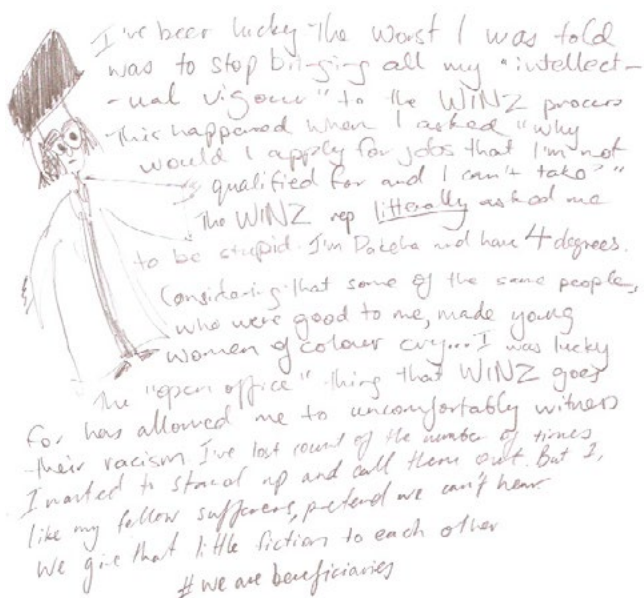 I've been lucky the worst I was told
was to stop bringing all my "intellect-
-ual vigour" to the WINZ process
This happened when I asked "why
would I apply for jobs that I'm not
qualified for and I can't take?"
The WINZ rep litterally asked me
to be stupid. I'm Pakeha and have 4 degrees.
Considering that some of the same people,
who were good to me, made young
women of colour cry... I was lucky
The "open office" thing that WINZ goes
for has allowed me to uncomfortably witness
their racism I've lost count of the number of times
I wanted to stand up and call them out. But I,
like my fellow sufferers, pretend we can't hear.
We give that little fiction to each other
# we are beneficiaries